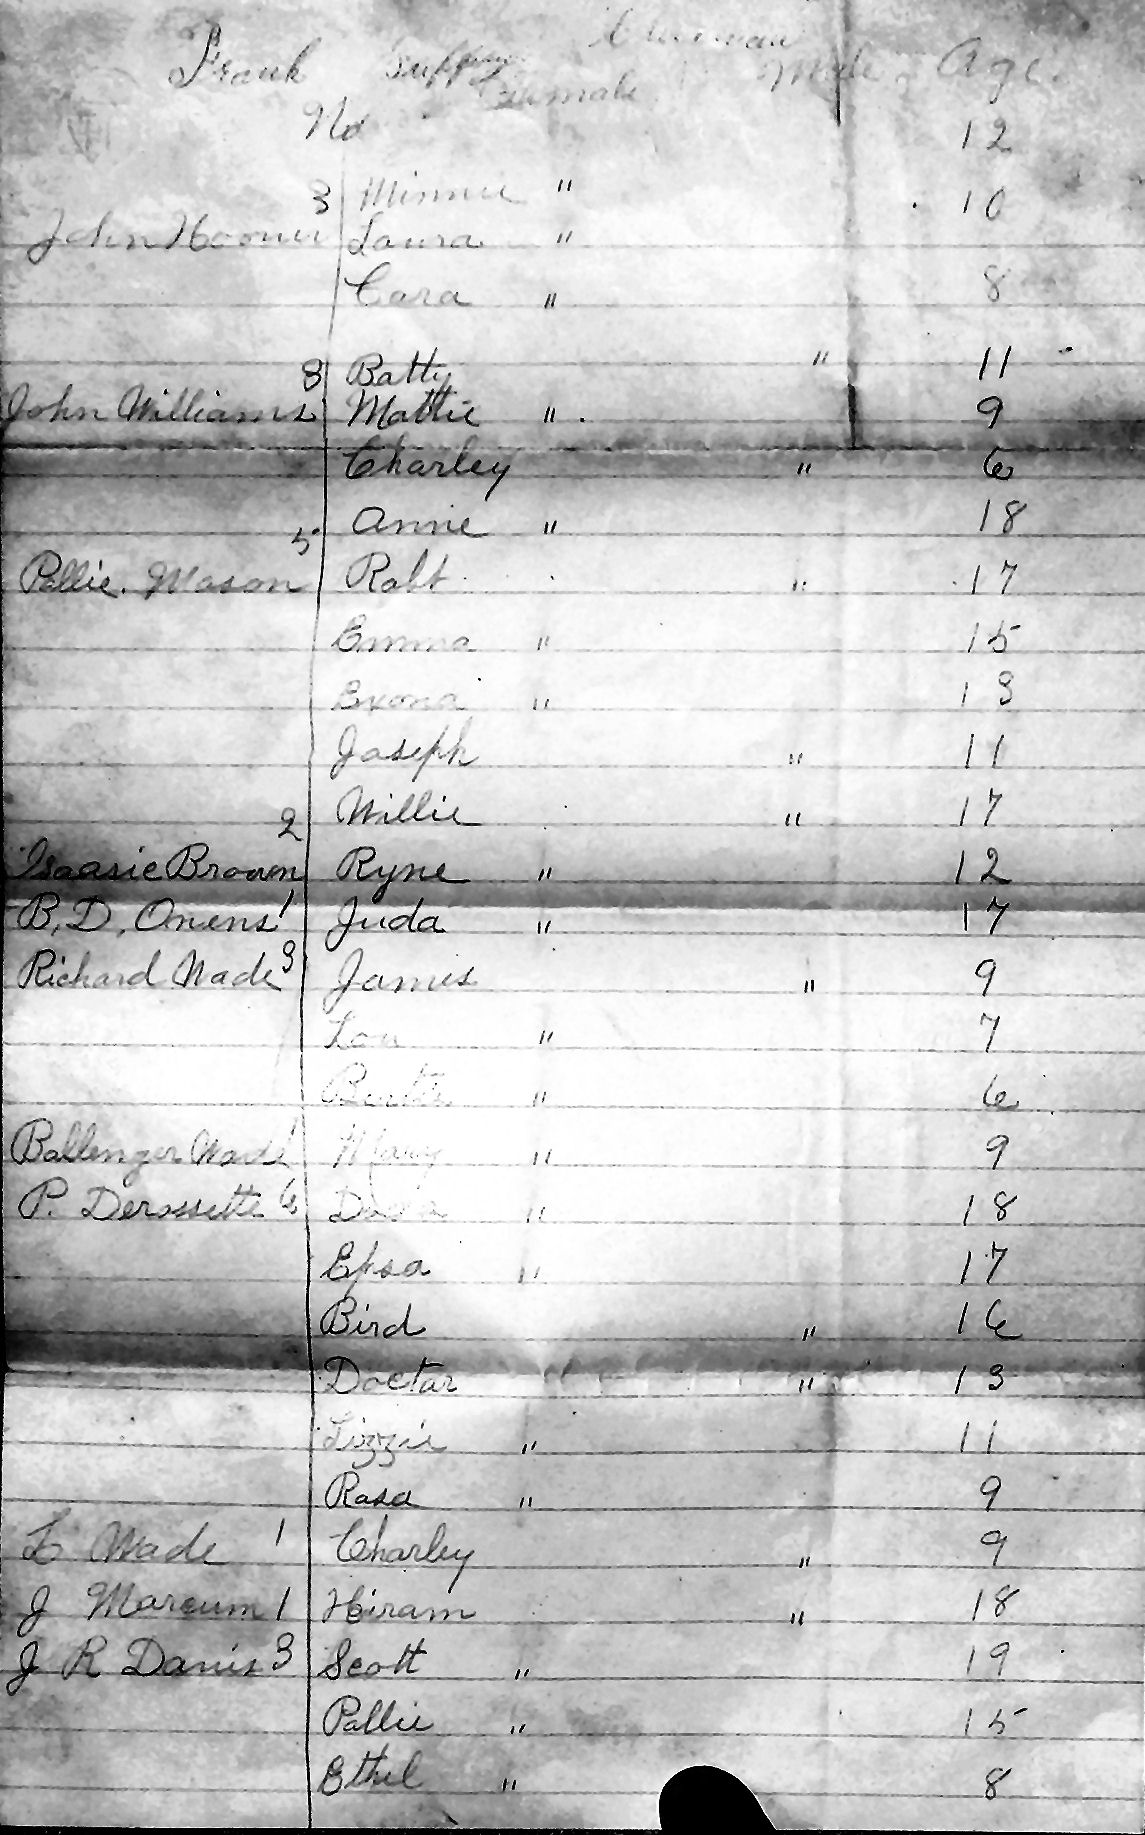 Frank Male Age
Female
No 12
3 Minnie " 10
John Hoover Laura "
Cara " 8
8 Batty " 11
John Williams Mattie " 9
Charley " 6
5 Annie " 18
Pallie Mason Robt " 17
Emma " 15
Exona " 13
Joseph " 11
2 Willie " 17
Isaasie Brown Ryne " 12
B. D. Owens 1 Juda " 17
Richard Wade 3 James " 9
Lou " 7
" 6
Ballenger Wade 1 Mary " 9
P. Derossette 6 " 18
Epsa " 17
Bird " 16
Doctar " 13
Lizzie " 11
Rasa " 9
L Wade 1 Charley " 9
J Marcum 1 Hiram " 18
J R Davis 3 Scott " 19
Pallie " 15
Ethel " 8